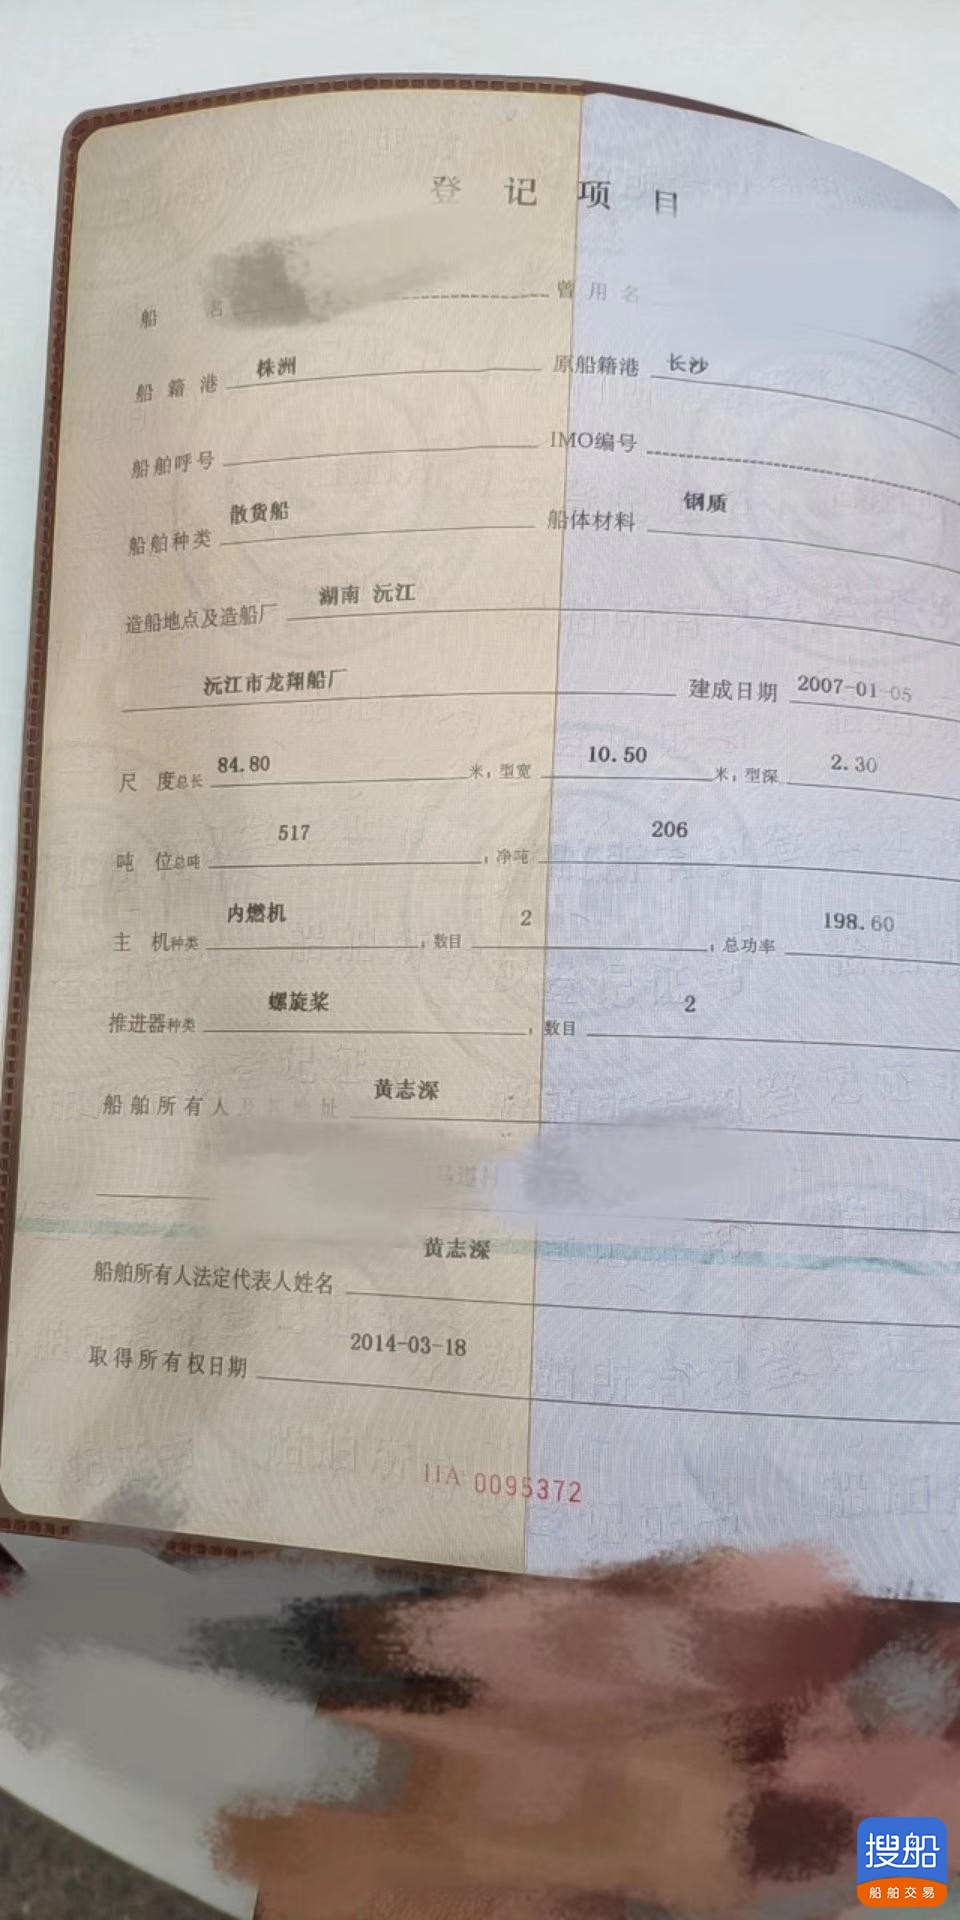 登记项目
船名 曾用名
船籍港 株洲 原船籍港 长沙
船舶呼号 IMO编号
船舶种类 散货船 船体材料 钢质
造船地点及造船厂 湖南 沅江
沅江市龙翔船厂 建成日期 2007-01-05
尺度总长 84.80 米，型宽 10.50 米，型深 2.30
吨位总吨 517，净吨 206
主机种类 内燃机，数目 2，总功率 198.60
推进器种类 螺旋桨，数目 2
船舶所有人及其地址 黄志深
船舶所有人法定代表人姓名 黄志深
取得所有权日期 2014-03-18
IIA 0095372
搜船
船舶交易